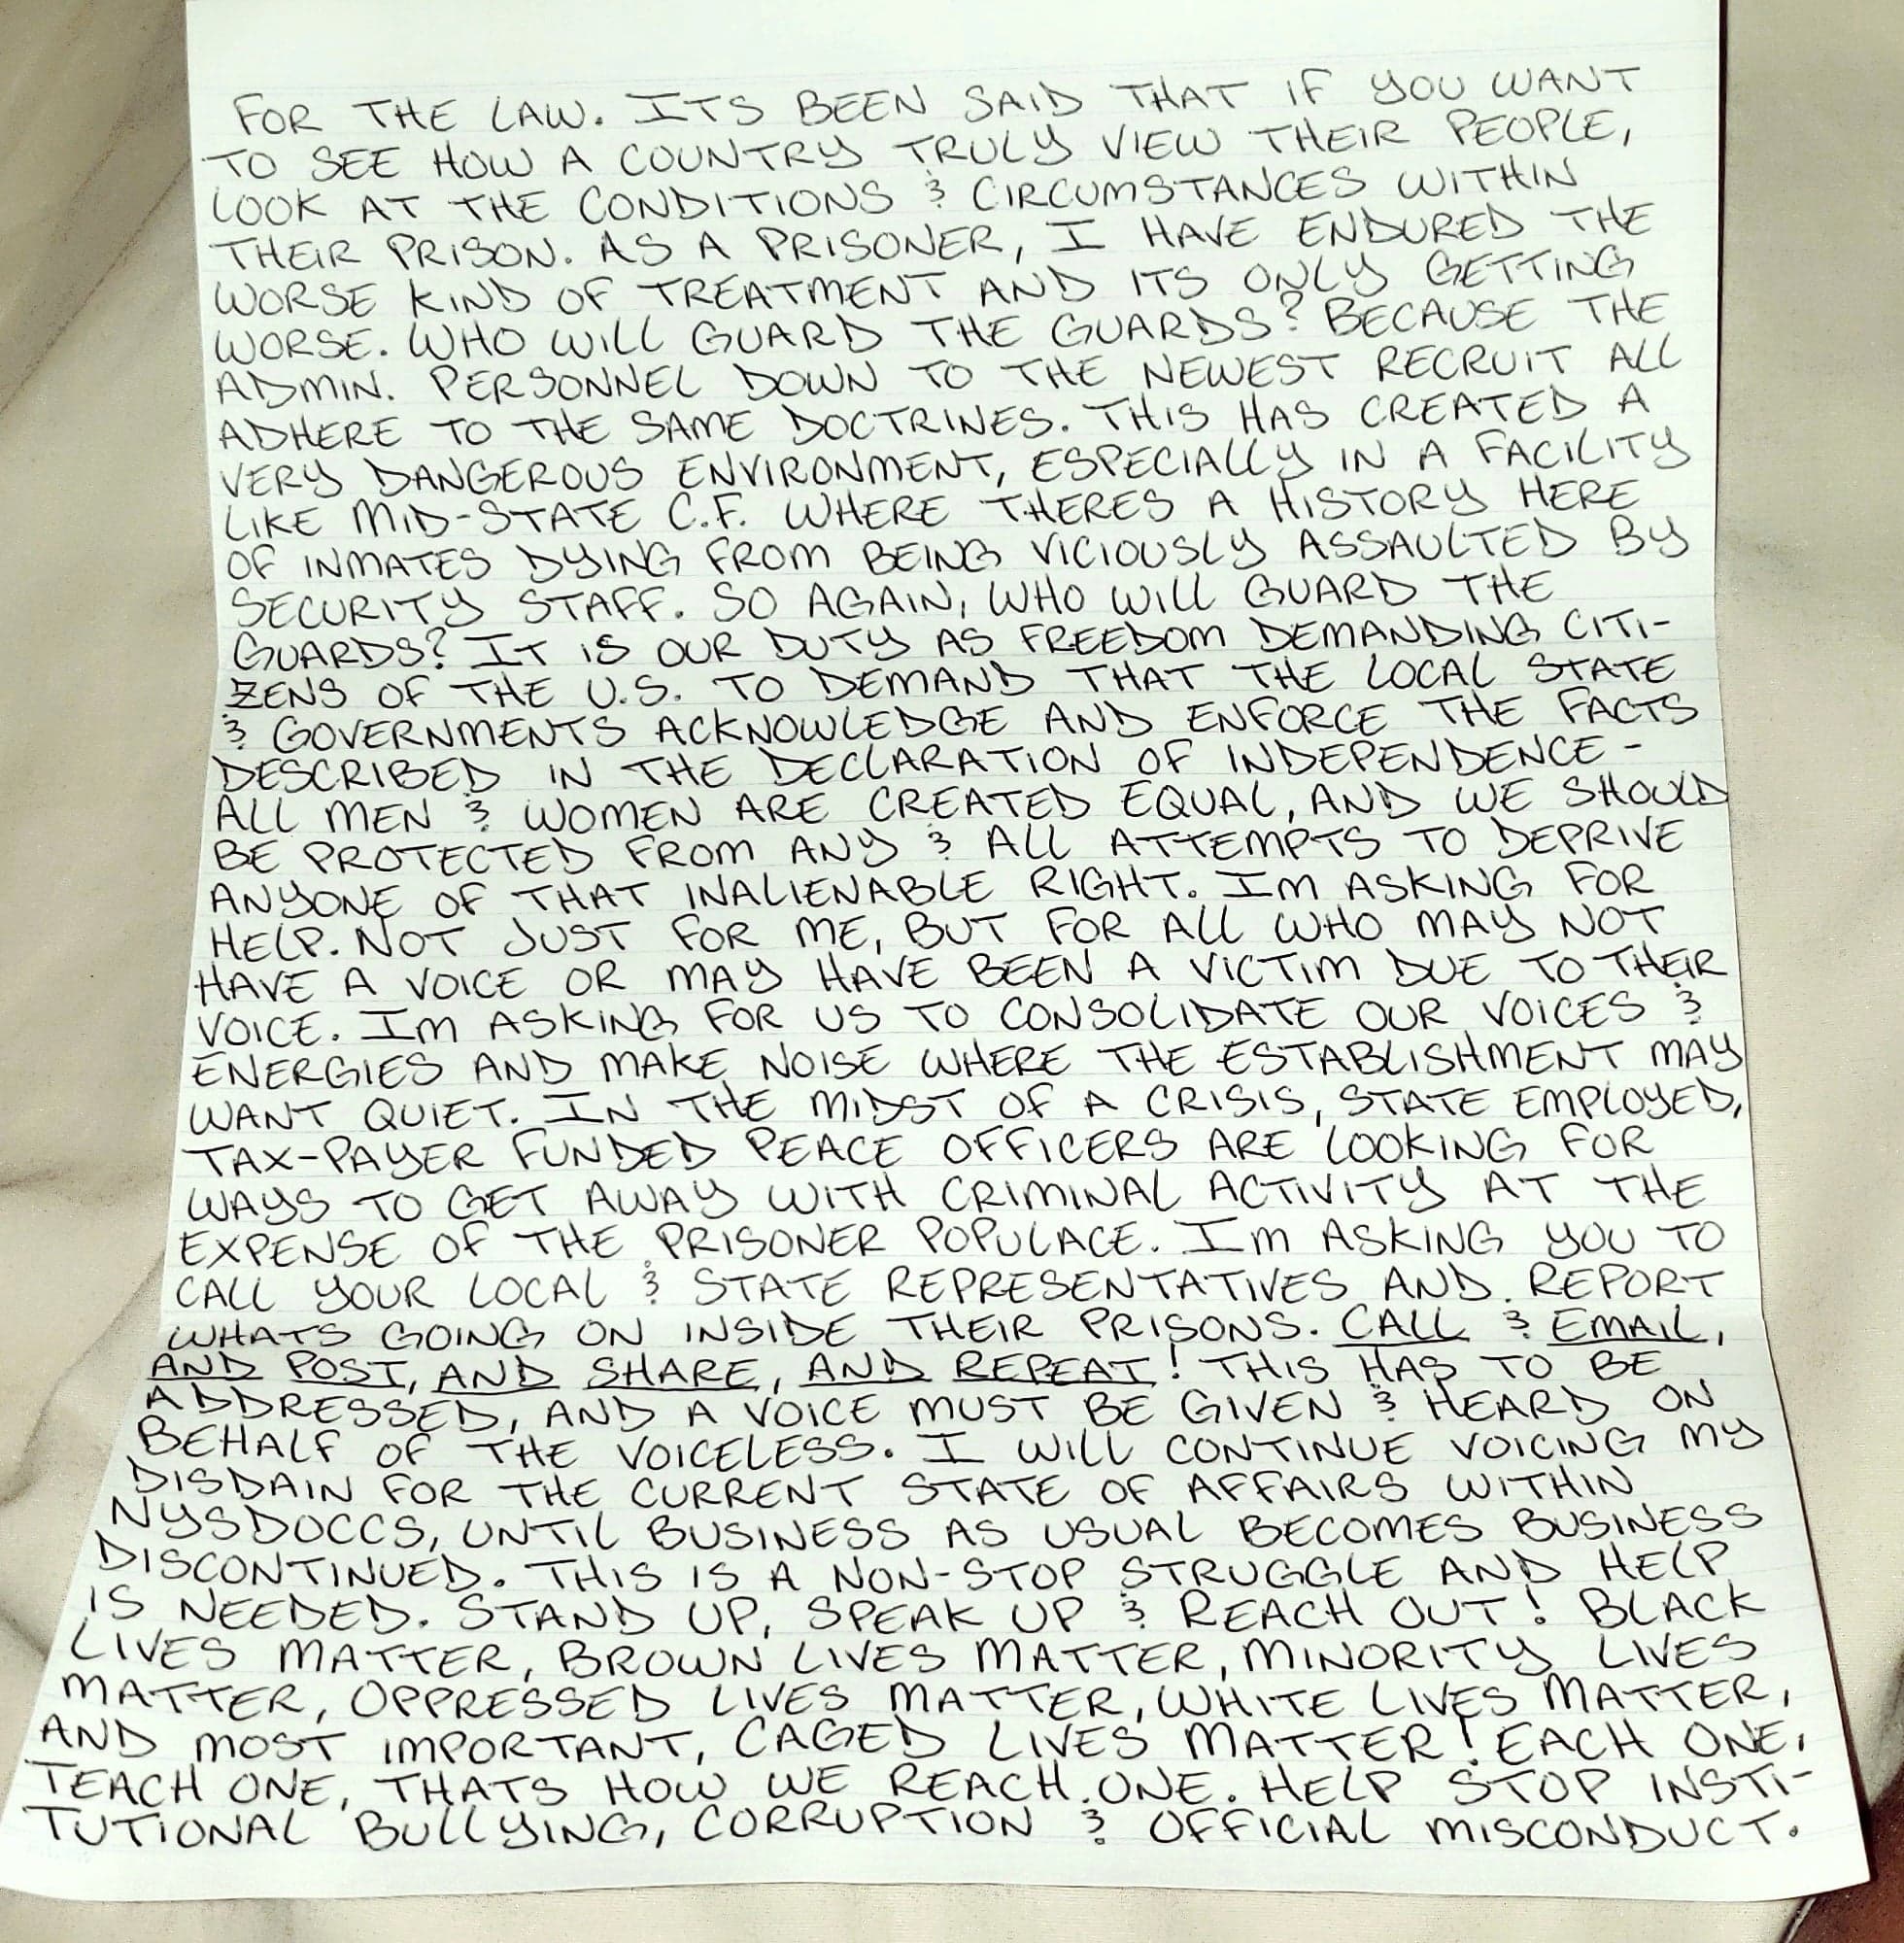 FOR THE LAW. ITS BEEN SAID THAT IF YOU WANT
TO SEE HOW A COUNTRY TRULY VIEW THEIR PEOPLE,
LOOK AT THE CONDITIONS & CIRCUMSTANCES WITHIN
THEIR PRISON. AS A PRISONER, I HAVE ENDURED THE
WORSE KIND OF TREATMENT AND ITS ONLY GETTING
WORSE. WHO WILL GUARD THE GUARDS? BECAUSE THE
ADMIN. PERSONNEL DOWN TO THE NEWEST RECRUIT ALL
ADHERE TO THE SAME DOCTRINES. THIS HAS CREATED A
VERY DANGEROUS ENVIRONMENT, ESPECIALLY IN A FACILITY
LIKE MID-STATE C.F. WHERE THERES A HISTORY HERE
OF INMATES DYING FROM BEING VICIOUSLY ASSAULTED BY
SECURITY STAFF. SO AGAIN, WHO WILL GUARD THE
GUARDS? IT IS OUR DUTY AS FREEDOM DEMANDING CITI-
ZENS OF THE U.S. TO DEMAND THAT THE LOCAL STATE
& GOVERNMENTS ACKNOWLEDGE AND ENFORCE THE FACTS
DESCRIBED IN THE DECLARATION OF INDEPENDENCE -
ALL MEN & WOMEN ARE CREATED EQUAL, AND WE SHOULD
BE PROTECTED FROM ANY & ALL ATTEMPTS TO DEPRIVE
ANYONE OF THAT INALIENABLE RIGHT. IM ASKING FOR
HELP. NOT JUST FOR ME, BUT FOR ALL WHO MAY NOT
HAVE A VOICE OR MAY HAVE BEEN A VICTIM DUE TO THEIR
VOICE. IM ASKING FOR US TO CONSOLIDATE OUR VOICES &
ENERGIES AND MAKE NOISE WHERE THE ESTABLISHMENT MAY
WANT QUIET. IN THE MIDST OF A CRISIS, STATE EMPLOYED,
TAX-PAYER FUNDED PEACE OFFICERS ARE LOOKING FOR
WAYS TO GET AWAY WITH CRIMINAL ACTIVITY AT THE
EXPENSE OF THE PRISONER POPULACE. IM ASKING YOU TO
CALL YOUR LOCAL & STATE REPRESENTATIVES AND REPORT
WHATS GOING ON INSIDE THEIR PRISONS. CALL & EMAIL,
AND POST, AND SHARE, AND REPEAT! THIS HAS TO BE
ADDRESSED, AND A VOICE MUST BE GIVEN & HEARD ON
BEHALF OF THE VOICELESS. I WILL CONTINUE VOICING MY
DISDAIN FOR THE CURRENT STATE OF AFFAIRS WITHIN
NYSDOCCS, UNTIL BUSINESS AS USUAL BECOMES BUSINESS
DISCONTINUED. THIS IS A NON-STOP STRUGGLE AND HELP
IS NEEDED. STAND UP, SPEAK UP & REACH OUT! BLACK
LIVES MATTER, BROWN LIVES MATTER, MINORITY LIVES
MATTER, OPPRESSED LIVES MATTER, WHITE LIVES MATTER,
AND MOST IMPORTANT, CAGED LIVES MATTER! EACH ONE,
TEACH ONE, THATS HOW WE REACH ONE. HELP STOP INSTI-
TUTIONAL BULLYING, CORRUPTION & OFFICIAL MISCONDUCT.